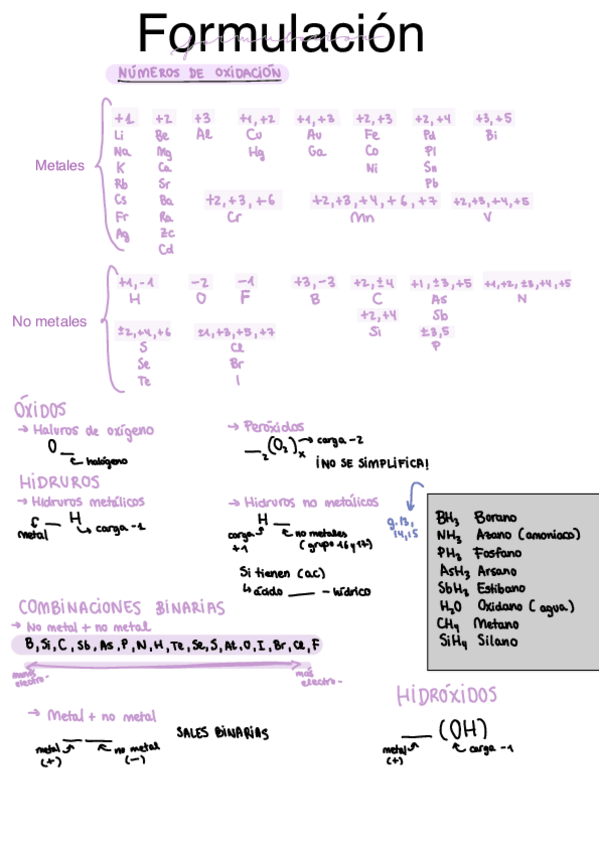 Formulación
formulación
NÚMEROS DE OXIDACIÓN
Metales
+1 +2 +3 +1,+2 +1,+3 +2,+3 +2,+4 +3,+5
Li Be Al Cu Au Fe Pd Bi
Na Mg Hg Ga Co Pl
K Ca Ni Sn
Rb Sr Pb
Cs Ba +2,+3,+6 +2,+3,+4,+6,+7 +2,+3,+4,+5
Fr Ra Cr Mn V
Ag Zc
Cd
No metales
+1,-1 -2 -1 +3,-3 +2,±4 +1,±3,+5 +1,+2,±3,+4,+5
H O F B C As N
+2,+4 Sb
±2,+4,+6 ±1,+3,+5,+7 Si ±3,5
S Cl P
Se Br
Te I
ÓXIDOS
→ Haluros de oxígeno → Peróxidos
O__ __₂(O₂)ₓ → carga -2
halógeno ¡NO SE SIMPLIFICA!
HIDRUROS
→ Hidruros metálicos → Hidruros no metálicos
__ H H __
metal carga -1 carga +1 no metales (grupo 16 y 17)
g.13,
14,15
Si tienen (ac)
↳ ácido ____ - hídrico
BH₃ Borano
NH₃ Azano (amoniaco)
PH₃ Fosfano
AsH₃ Arsano
SbH₃ Estibano
H₂O Oxidano (agua)
CH₄ Metano
SiH₄ Silano
COMBINACIONES BINARIAS
→ No metal + no metal
B, Si, C, Sb, As, P, N, H, Te, Se, S, At, O, I, Br, Cl, F
menos electro- más electro-
→ Metal + no metal
SALES BINARIAS
metal (+) no metal (-)
HIDRÓXIDOS
__ (OH)
metal (+) carga -1